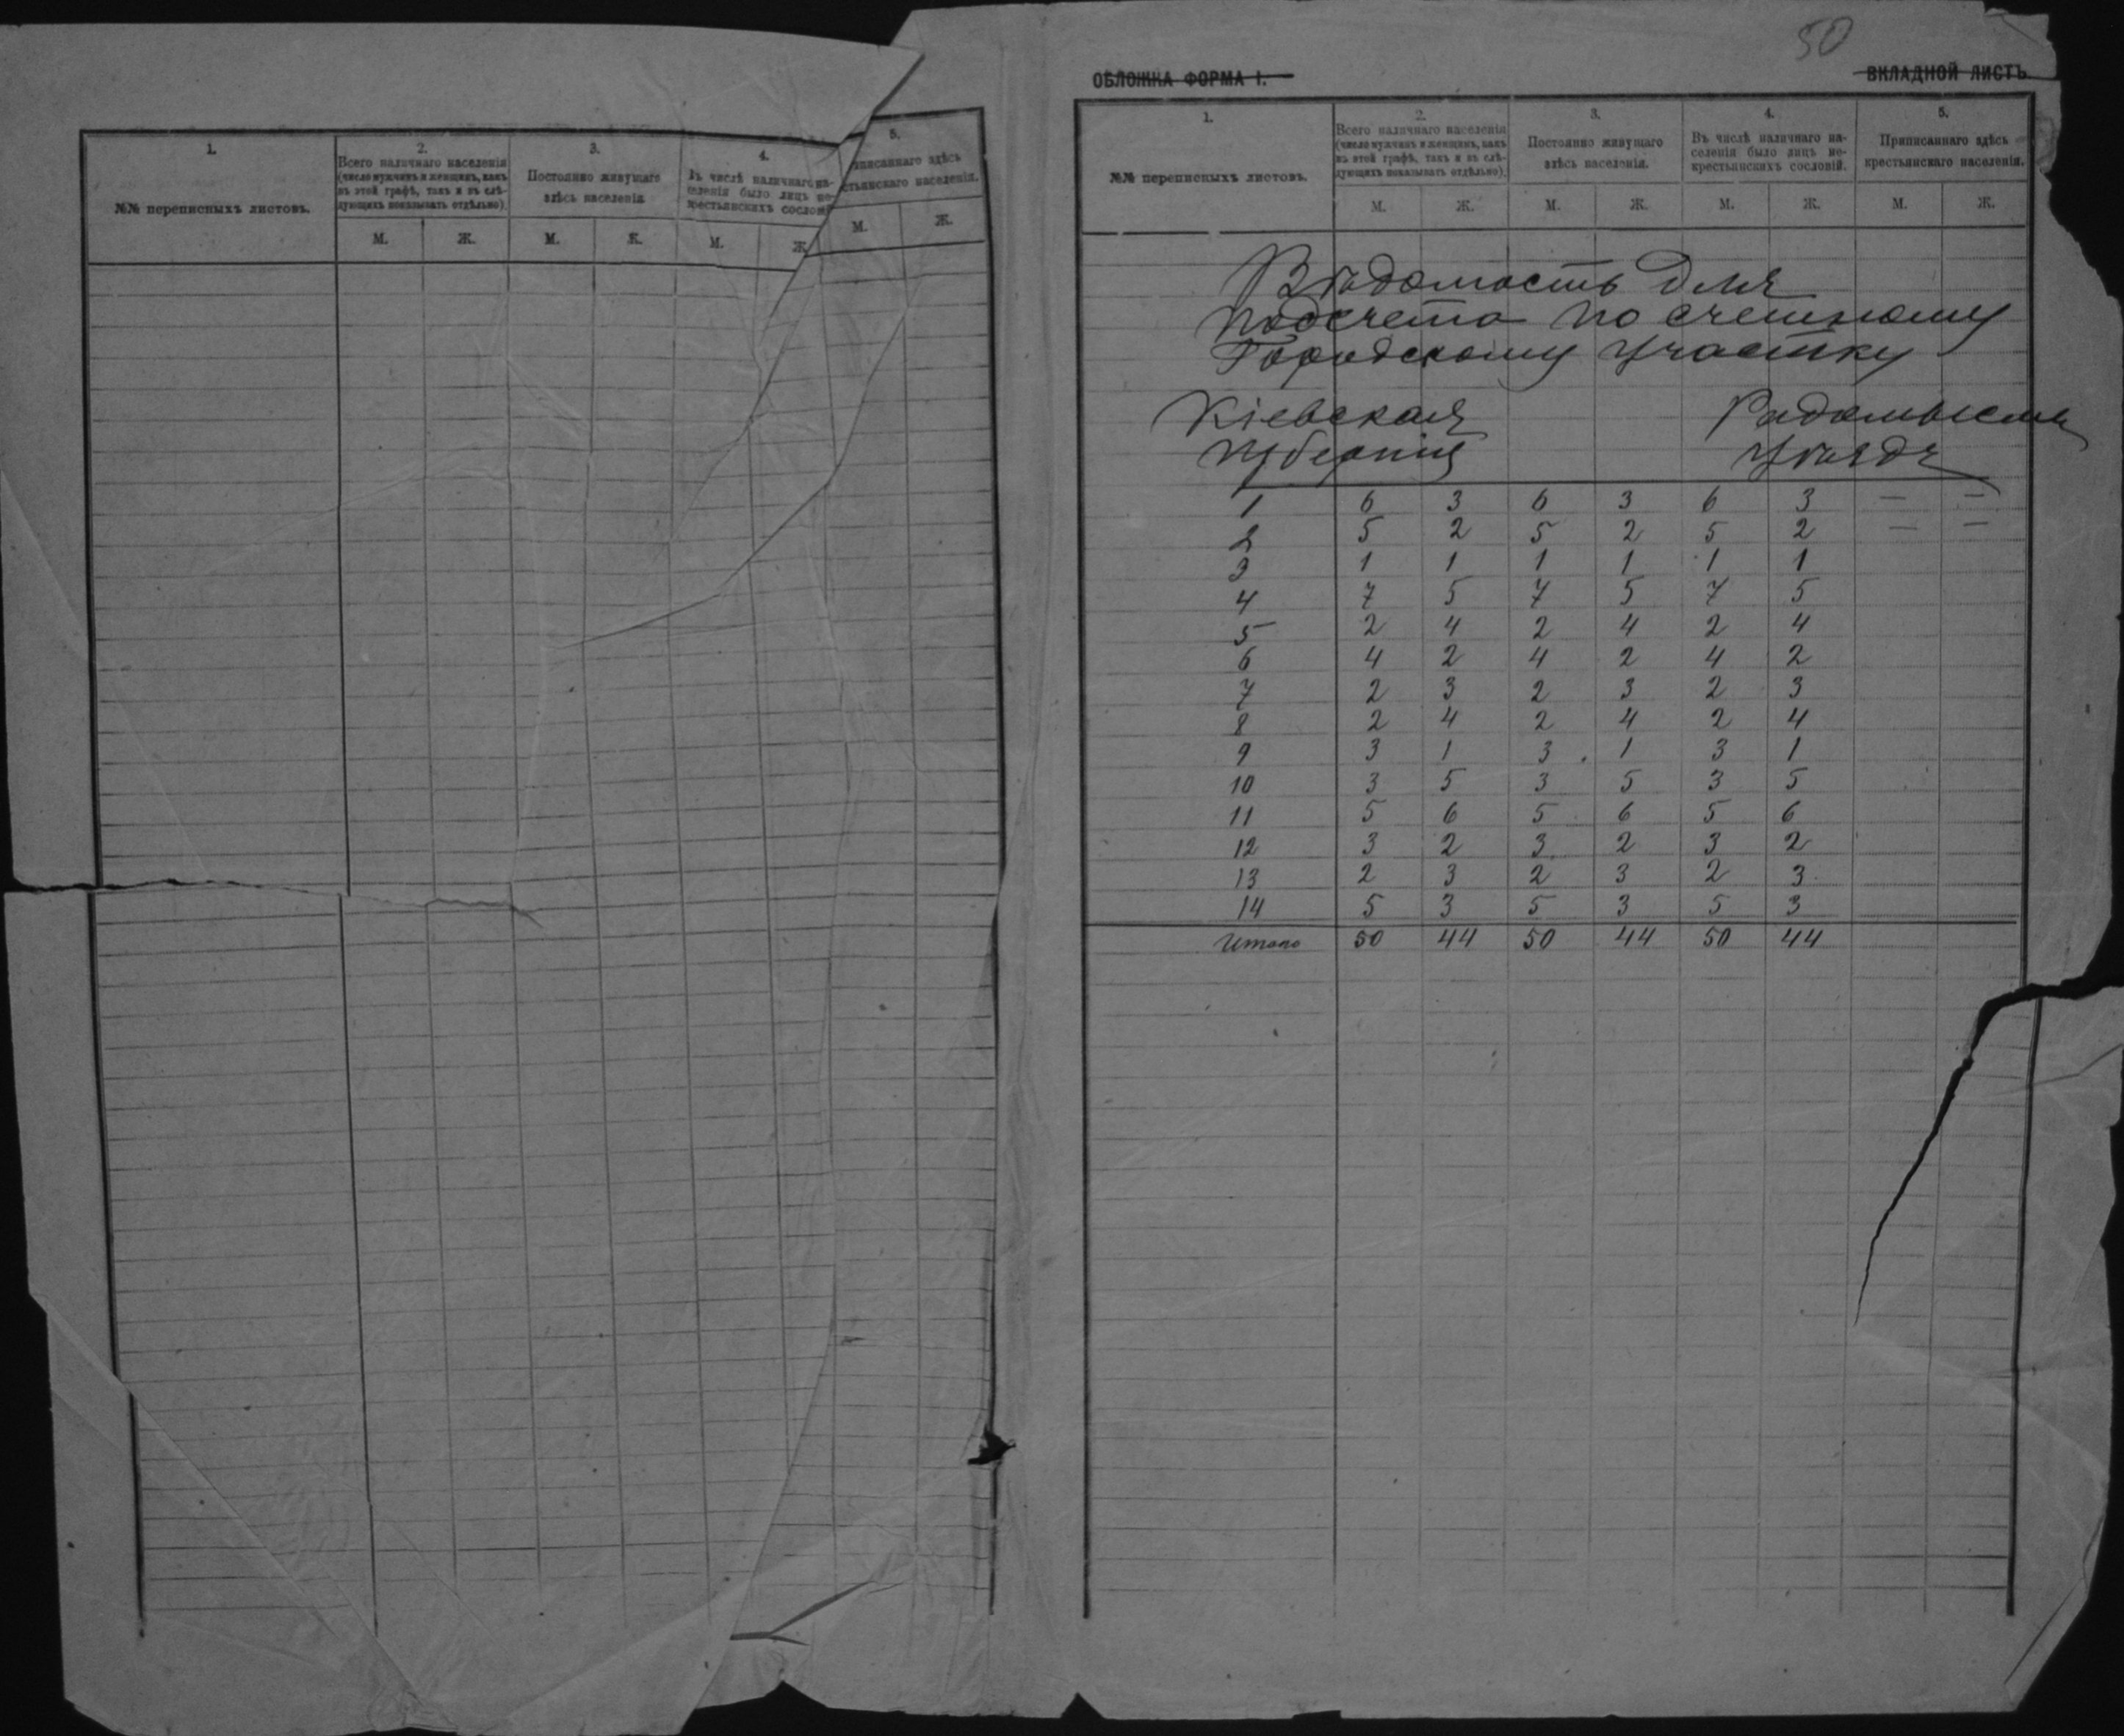 1.
№№ переписныхъ листовъ.
2.
Всего наличнаго населенія
(число мужчинъ и женщинъ, какъ
въ этой графѣ, такъ и въ слѣ-
дующихъ показывать отдѣльно).
М. Ж.
3.
Постоянно живущаго
здѣсь населенія.
М. Ж.
4.
Въ числѣ наличнаго на-
селенія было лицъ не-
крестьянскихъ сословій
М. Ж.
5.
писаннаго здѣсь
стьянскаго населенія.
М. Ж.
50
ОБЛОЖКА ФОРМА I.
ВКЛАДНОЙ ЛИСТЪ
1.
№№ переписныхъ листовъ.
2.
Всего наличнаго населенія
(число мужчинъ и женщинъ, какъ
въ этой графѣ, такъ и въ слѣ-
дующихъ показывать отдѣльно).
М. Ж.
3.
Постоянно живущаго
здѣсь населенія.
М. Ж.
4.
Въ числѣ наличнаго на-
селенія было лицъ не-
крестьянскихъ сословій.
М. Ж.
5.
Приписаннаго здѣсь
крестьянскаго населенія.
М. Ж.
Вѣдомость для
подсчета по счетному
Городскому участку
Кіевская
губернія
Радомысль
уѣздъ
1 6 3 6 3 6 3 — —
2 5 2 5 2 5 2 — —
3 1 1 1 1 1 1
4 7 5 7 5 7 5
5 2 4 2 4 2 4
6 4 2 4 2 4 2
7 2 3 2 3 2 3
8 2 4 2 4 2 4
9 3 1 3 1 3 1
10 3 5 3 5 3 5
11 5 6 5 6 5 6
12 3 2 3 2 3 2
13 2 3 2 3 2 3
14 5 3 5 3 5 3
Итого 50 44 50 44 50 44